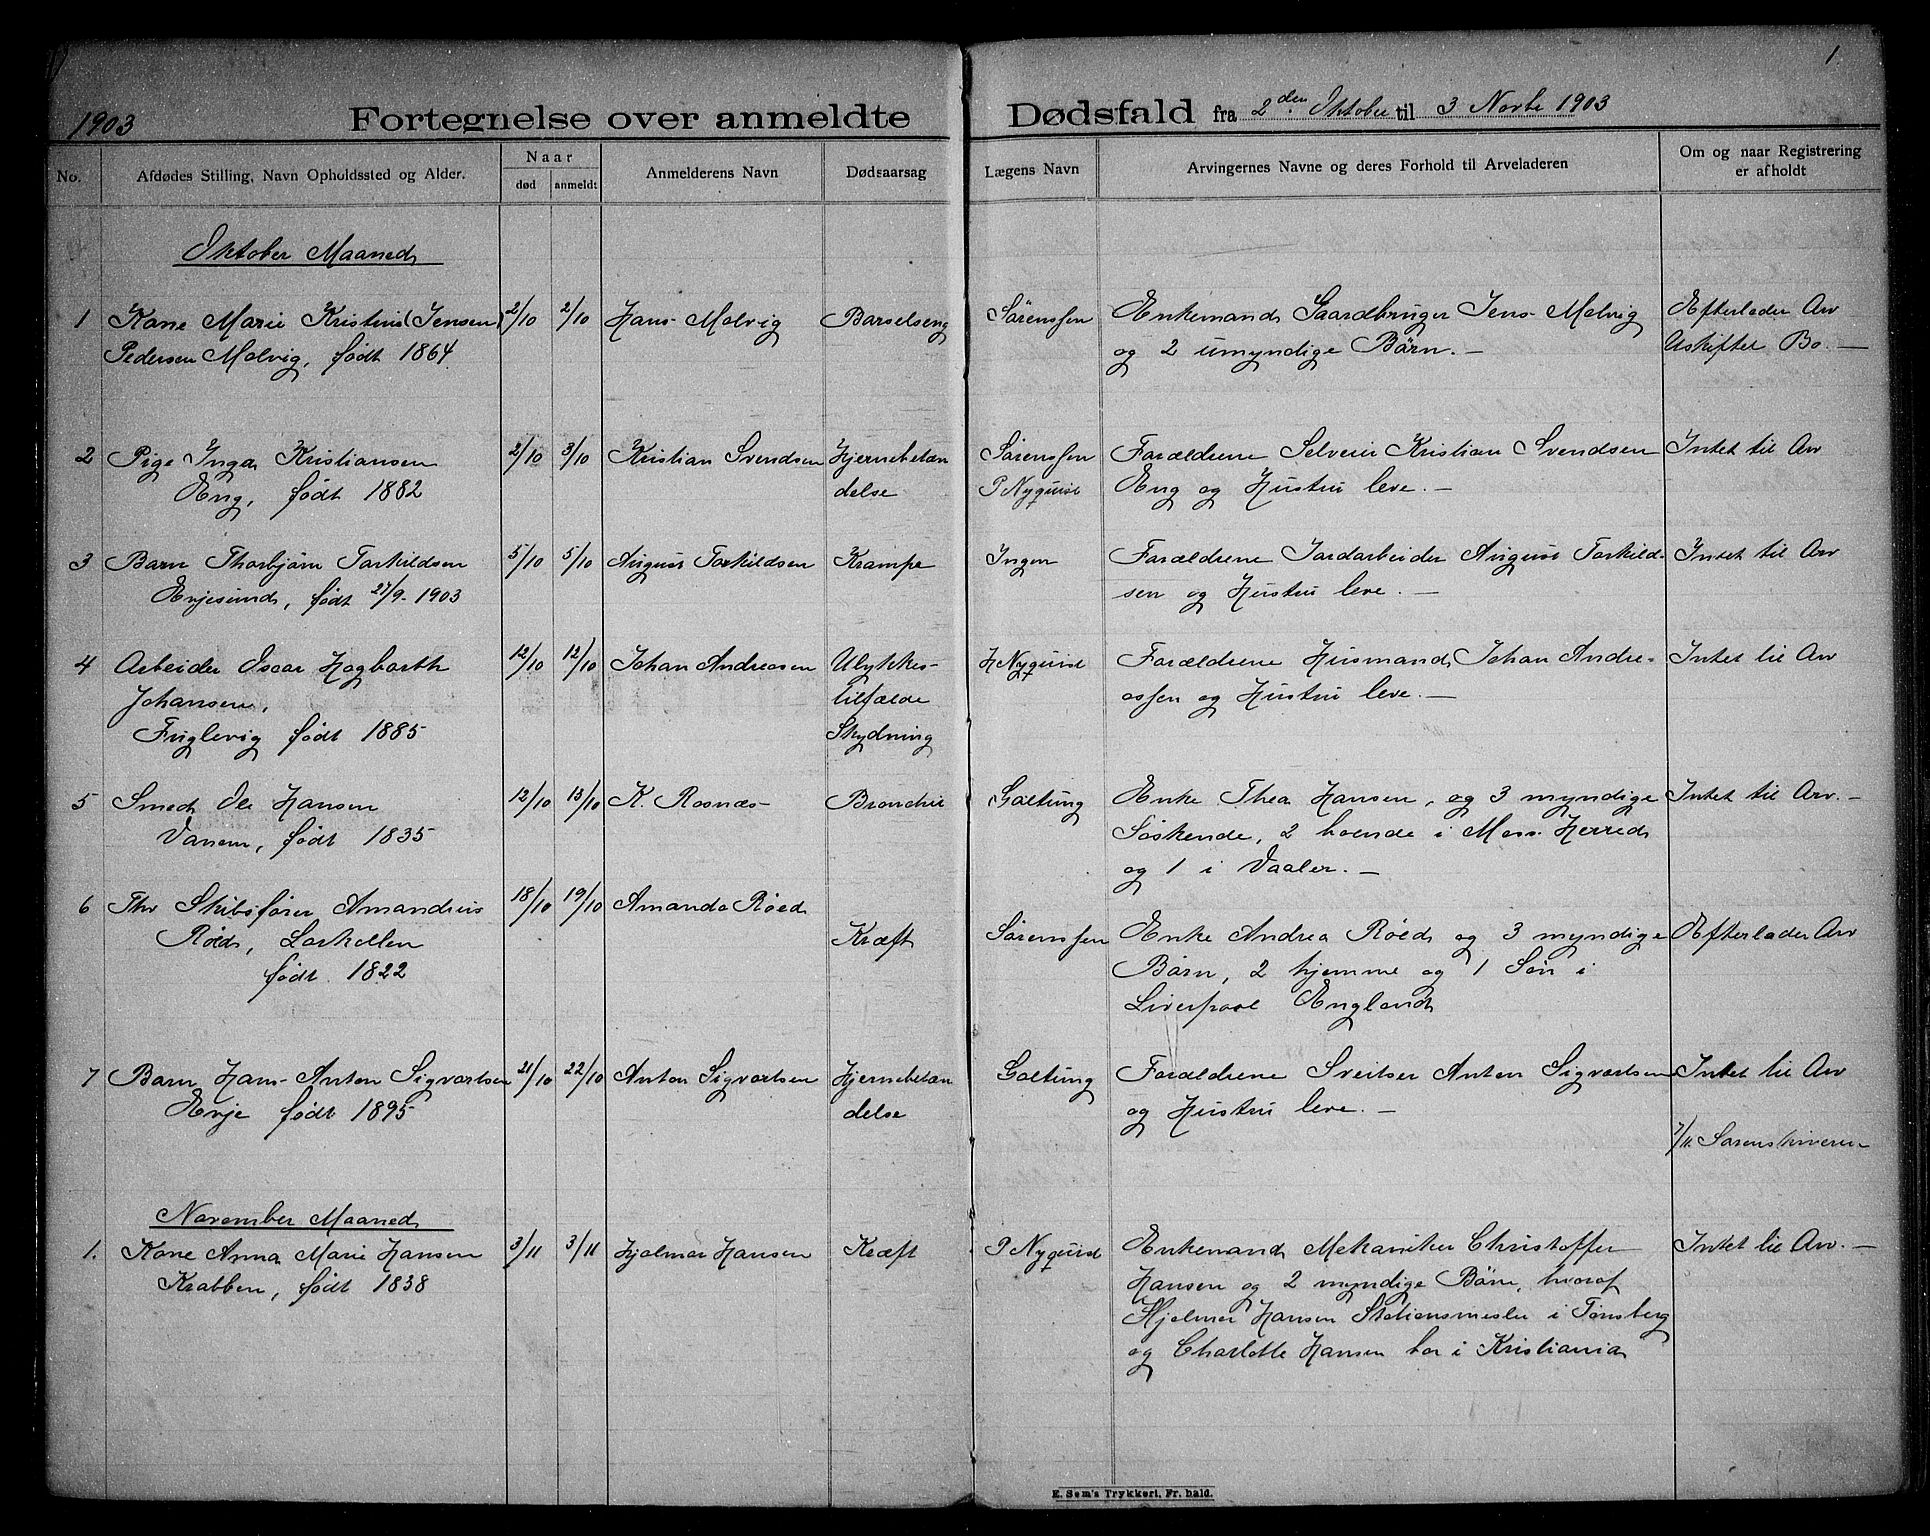 1
1903 Fortegnelse over anmeldte Dødsfald fra 2den Oktober til 3 Novbr 1903
No. Afdødes Stilling, Navn Opholdssted og Alder. Naar død anmeldt Anmelderens Navn Dødsaarsag Lægens Navn Arvingernes Navne og deres Forhold til Arveladeren Om og naar Registrering er afholdt
Oktober Maaned
1 Kone Marie Kristine (Jensen) 2/10 2/10 Hans Molvig Barselseng Sörenssen Enkemand Gaardbruger Jens Molvig Efterlader Arv
Pedersen Molvig, født 1864. og 2 umyndige Börn. — Uskiftet Bo. —
2 Pige Inga Kristiansen 2/10 3/10 Kristian Svendsen Hjernebetæn Sörenssen Forældrene Selveier Kristian Svendsen Intet til Arv
Eng, født 1882 delse P Nyquist Eng og Hustru leve. —
3 Barn Thorbjörn Torkildsen 5/10 5/10 August Torkildsen Krampe Ingen Forældrene Jordarbeider August Torkild- Intet til Arv
Evjesund, født 27/9 - 1903 sen og Hustru leve. —
4 Arbeider Oscar Hagbarth 12/10 12/10 Johan Andreasen Ulykkes- H Nyquist Forældrene Husmand Johan Andre- Intet til Arv
Johansen, tilfælde assen og Hustru leve. —
Fuglevig født 1885 Skydning
5 Smed Ole Hansen 12/10 13/10 K. Rosnæs Bronchit Galtung Enke Thea Hansen, og 3 myndige Intet til Arv. —
Vanem, født 1835 Söskende, 2 boende i Moss Herred
og 1 i Vaaler. —
6 Fhv Skibsfører Amandeus 18/10 19/10 Amanda Röed
Röed, Larkollen Kræft Sörenssen Enke Andrea Röed og 3 myndige Efterlader Arv
født 1822 Börn, 2 hjemme og 1 Sön i
Liverpool England
7 Barn Hans Anton Sigvartsen 21/10 22/10 Anton Sigvartsen Hjernebetæn Galtung Forældrene Sveitser Anton Sigvartsen Intet til Arv
Evje født 1895 delse og Hustru leve. —
7/11 Sorenskriveren
November Maaned
1. Kone Anna Marie Hansen 3/11 3/11 Hjalmar Hansen Kræft P Nyquist Enkemand Mekaniker Christoffer Intet til Arv. —
Krabben, født 1838 Hansen og 2 myndige Börn, hvoraf
Hjalmar Hansen Stationsmester i Tönsberg
og Charlotte Hansen bor i Kristiania
E. Sem's Trykkeri, Fr. hald.